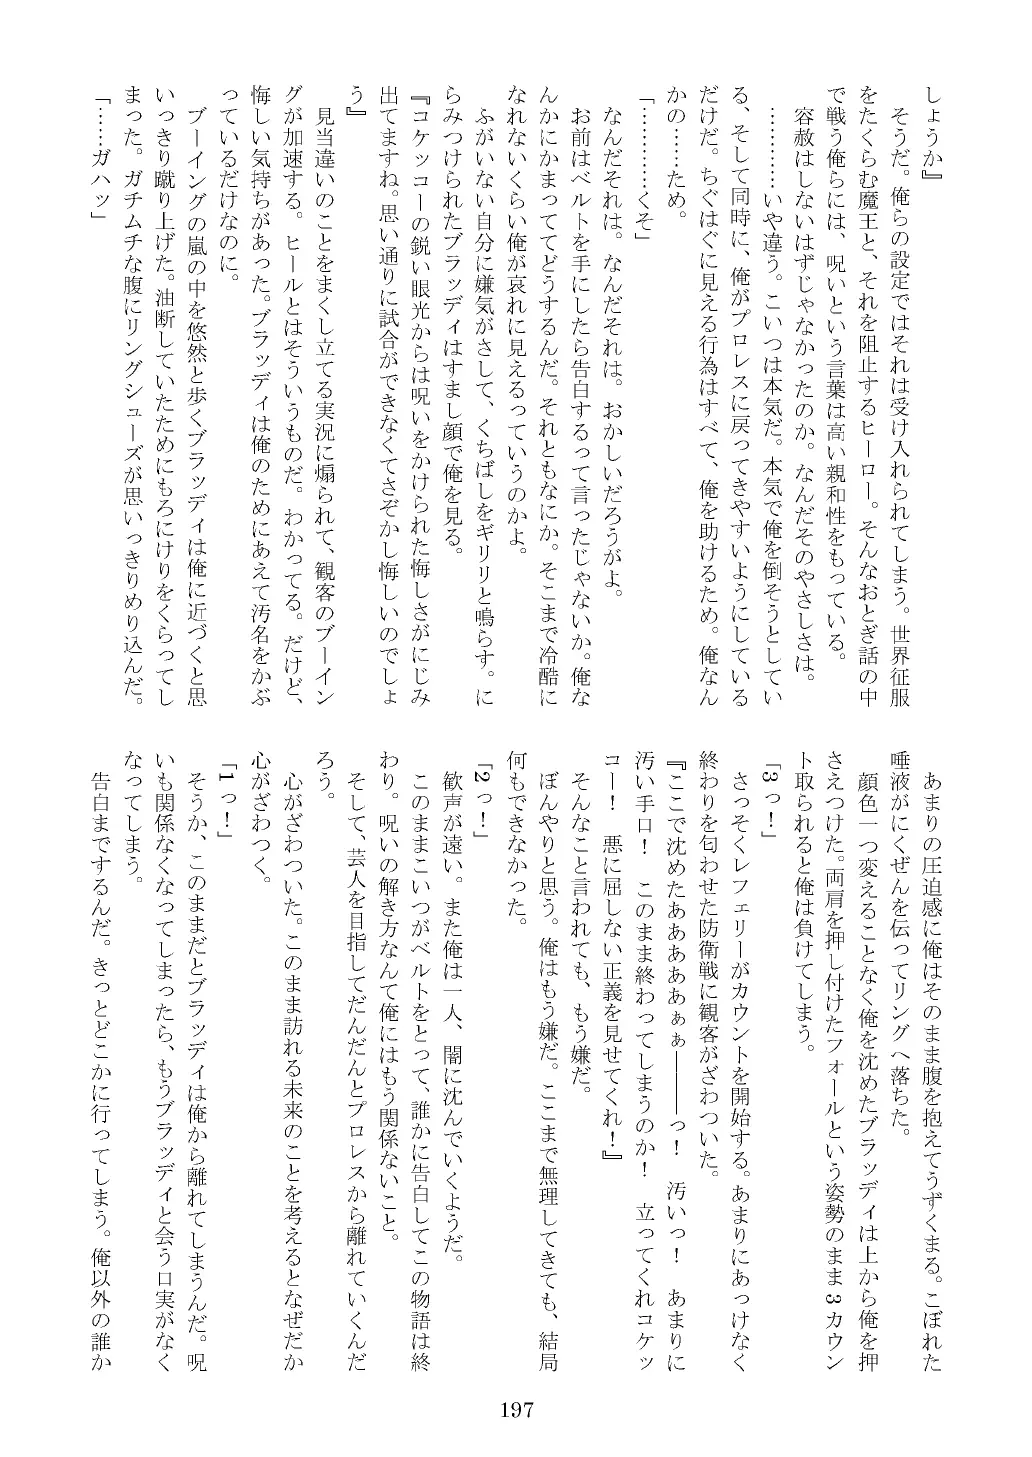 しょうか』
　そうだ。俺らの設定ではそれは受け入れられてしまう。世界征服
をたくらむ魔王と、それを阻止するヒーロー。そんなおとぎ話の中
で戦う俺らには、呪いという言葉は高い親和性をもっている。
　容赦はしないはずじゃなかったのか。なんだそのやさしさは。
　…………いや違う。こいつは本気だ。本気で俺を倒そうとしてい
る、そして同時に、俺がプロレスに戻ってきやすいようにしている
だけだ。ちぐはぐに見える行為はすべて、俺を助けるため。俺なん
かの……ため。
「…………くそ」
　なんだそれは。なんだそれは。おかしいだろうがよ。
　お前はベルトを手にしたら告白するって言ったじゃないか。俺な
んかにかまっててどうするんだ。それともなにか。そこまで冷酷に
なれないくらい俺が哀れに見えるっていうのかよ。
　ふがいない自分に嫌気がさして、くちばしをギリリと鳴らす。に
らみつけられたブラッディはすまし顔で俺を見る。
『コケッコーの鋭い眼光からは呪いをかけられた悔しさがにじみ
出てますね。思い通りに試合ができなくてさぞかし悔しいのでしょ
う』
　見当違いのことをまくし立てる実況に煽られて、観客のブーイン
グが加速する。ヒールとはそういうものだ。わかってる。だけど、
悔しい気持ちがあった。ブラッディは俺のためにあえて汚名をかぶ
っているだけなのに。
　ブーイングの嵐の中を悠然と歩くブラッディは俺に近づくと思
いっきり蹴り上げた。油断していたためにもろにけりをくらってし
まった。ガチムチな腹にリングシューズが思いっきりめり込んだ。
「……ガハッ」
　あまりの圧迫感に俺はそのまま腹を抱えてうずくまる。こぼれた
唾液がにくぜんを伝ってリングへ落ちた。
　顔色一つ変えることなく俺を沈めたブラッディは上から俺を押
さえつけた。両肩を押し付けたフォールという姿勢のまま3カウン
ト取られると俺は負けてしまう。
「3っ！」
　さっそくレフェリーがカウントを開始する。あまりにあっけなく
終わりを匂わせた防衛戦に観客がざわついた。
『ここで沈めたああああぁぁ―――っ！　汚いっ！　あまりに
汚い手口！　このまま終わってしまうのか！　立ってくれコケッ
コー！　悪に屈しない正義を見せてくれ！』
　そんなこと言われても、もう嫌だ。
　ぼんやりと思う。俺はもう嫌だ。ここまで無理してきても、結局
何もできなかった。
「2っ！」
　歓声が遠い。また俺は一人、闇に沈んでいくようだ。
　このままこいつがベルトをとって、誰かに告白してこの物語は終
わり。呪いの解き方なんて俺にはもう関係ないこと。
　そして、芸人を目指してだんだんとプロレスから離れていくんだ
ろう。
　心がざわついた。このまま訪れる未来のことを考えるとなぜだか
心がざわつく。
「1っ！」
　そうか、このままだとブラッディは俺から離れてしまうんだ。呪
いも関係なくなってしまったら、もうブラッディと会う口実がなく
なってしまう。
　告白までするんだ。きっとどこかに行ってしまう。俺以外の誰か
197